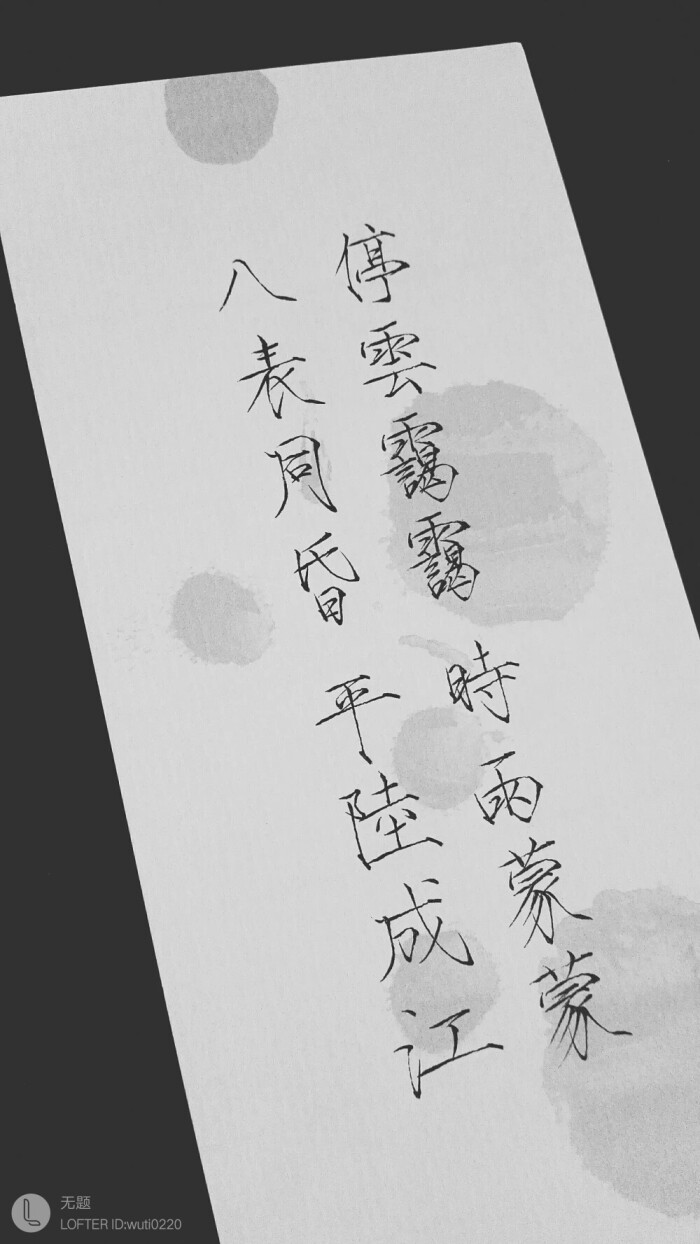 停雲靄靄 時雨蒙蒙
八表同昏 平陸成江
无题
LOFTER ID:wuti0220